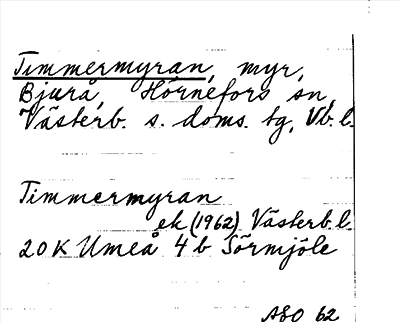 Timmermyran, myr,
Bjurå, Hörnefors sn,
Västerb. s. doms. tg, Vb. l.
Timmermyran
ek (1962) Västerb. l.
20K Umeå 4b Sörmjöle
ASO 62